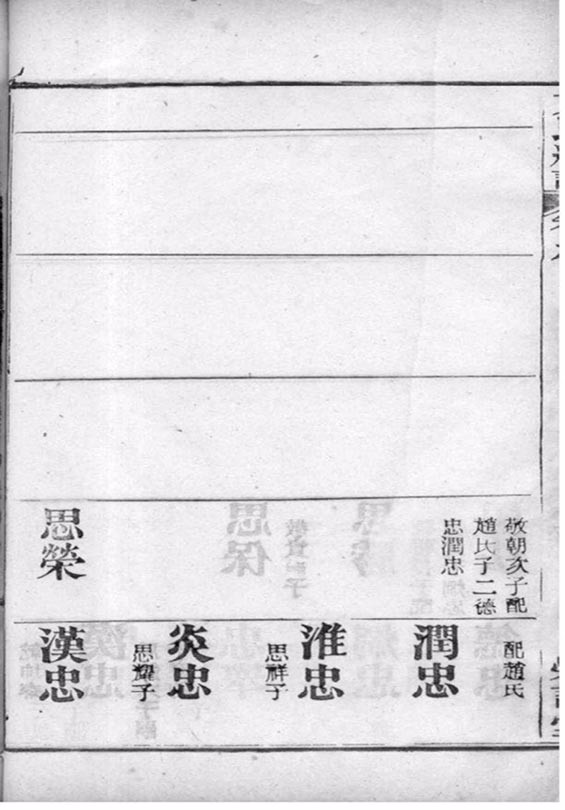 敬朝次子配
趙氏子二德
忠潤忠
思榮
配趙氏
潤忠
淮忠
思祥子
炎忠
思耀子
漢忠